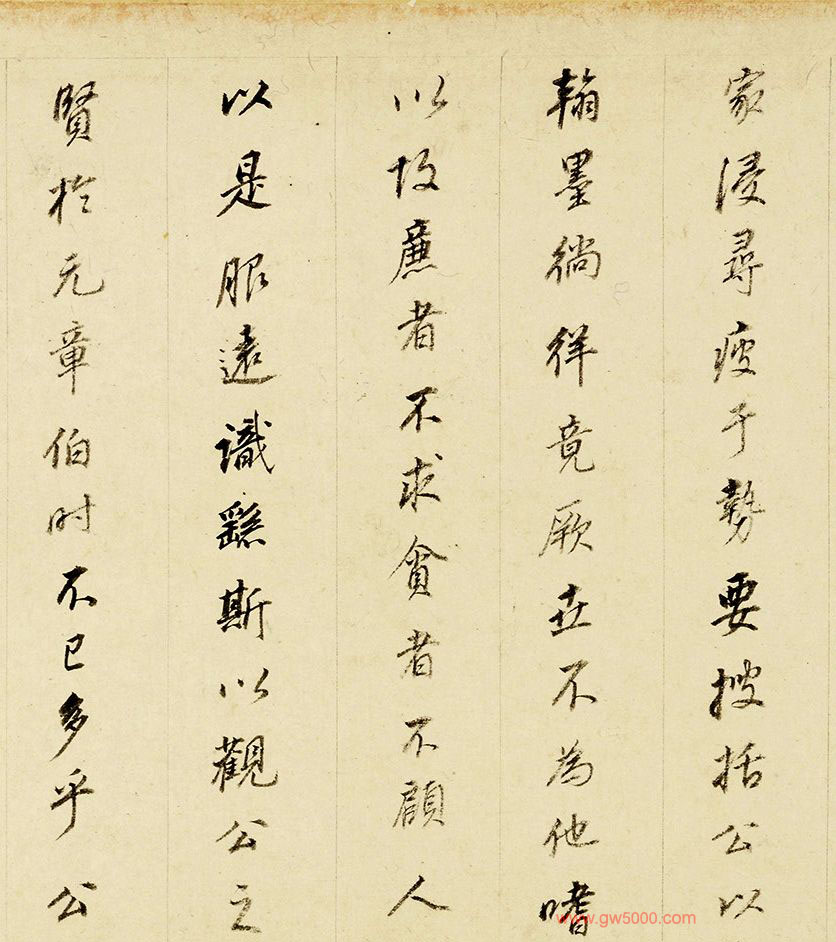 家浸尋疲于勢要搜括公以
翰墨徜徉竟厥世不為他嗜
以故廉者不求貪者不顧人
以是服遠識繇斯以觀公之
賢於元章伯时不已多乎公
www.gw5000.com